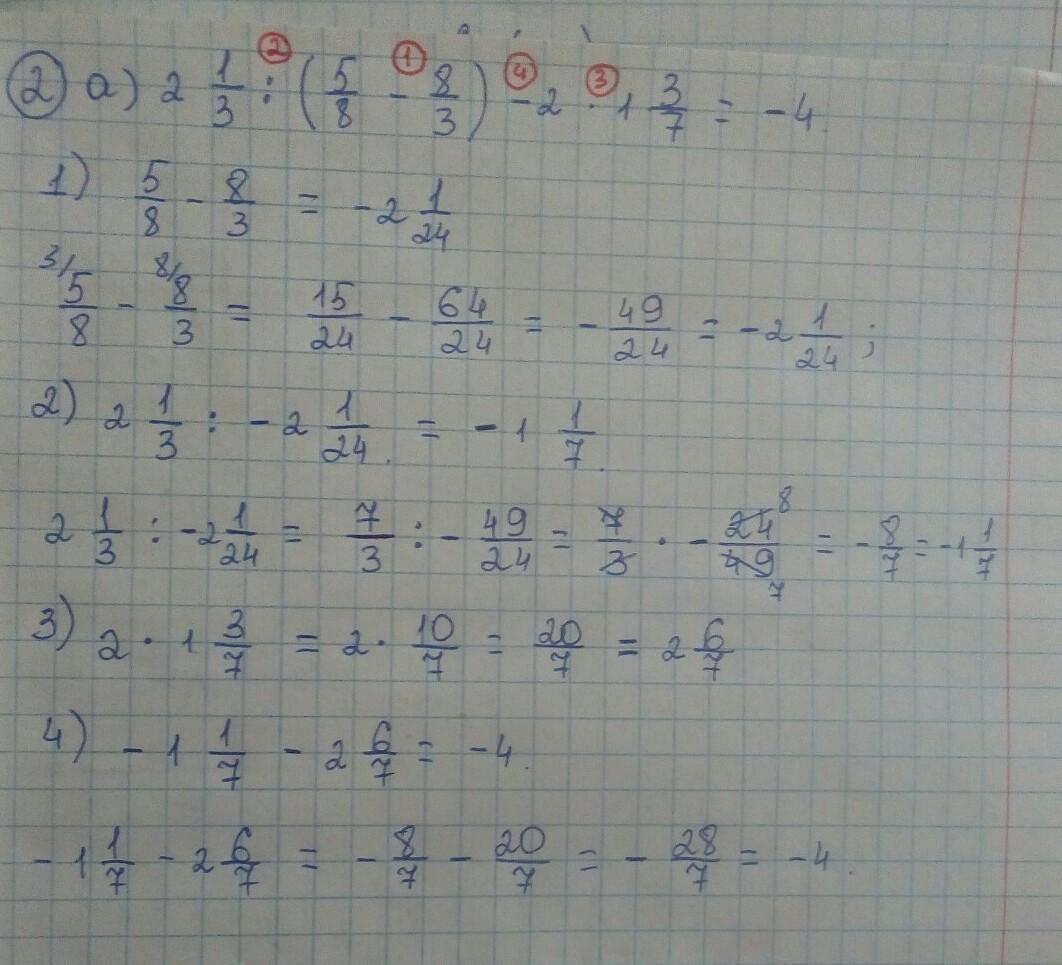 ② а) 2 1/3 : (5/8 - 8/3) - 2 · 1 3/7 = -4.
② ① ④ ③
1) 5/8 - 8/3 = -2 1/24
3/ 5/8 - 8/ 8/3 = 15/24 - 64/24 = - 49/24 = -2 1/24 ;
2) 2 1/3 : -2 1/24 = -1 1/7.
2 1/3 : -2 1/24 = 7/3 : - 49/24 = 7/3 · - 24/49 8 7 = - 8/7 = -1 1/7
3) 2 · 1 3/7 = 2 · 10/7 = 20/7 = 2 6/7
4) -1 1/7 - 2 6/7 = -4.
-1 1/7 - 2 6/7 = - 8/7 - 20/7 = - 28/7 = -4.